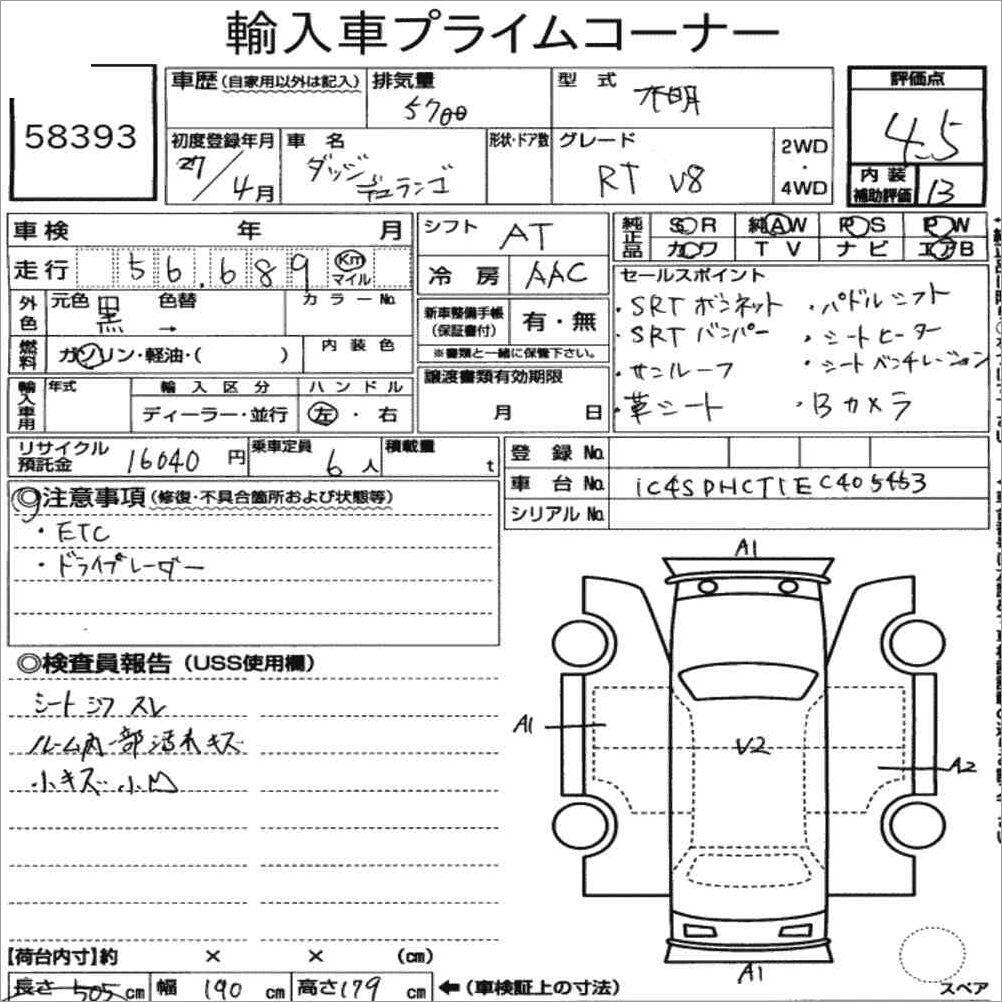 輸入車プライムコーナー
58393
車歴(自家用以外は記入) 排気量 5700 型式 不明 評価点 4.5
初度登録年月 27/4月 車名 ダッジ デュランゴ 形状・ドア数 グレード RT V8 2WD・4WD 内装補助評価 B
車検 年 月 シフト AT 純正品 SR 純AW PS PW
カワ TV ナビ エアB
走行 56,689 Km マイル 冷房 AAC
外色 元色 黒 色替 → カラーNo.
新車整備手帳(保証書付) 有・無
※書類と一緒に保管下さい。
燃料 ガソリン・軽油・( ) 内装色
セールスポイント
・SRTボンネット ・パドルシフト
・SRTバンパー ・シートヒーター
・サンルーフ ・シートベンチレーション
・革シート ・Bカメラ
輸入車用 年式 輸入区分 ハンドル
ディーラー・並行 左・右
譲渡書類有効期限
月 日
リサイクル預託金 16040円 乗車定員 6人 積載量 t
登録No.
車台No. 1C4SDHCT1EC405453
シリアルNo.
◎注意事項(修復・不具合箇所および状態等)
・ETC
・ドライブレーダー
◎検査員報告(USS使用欄)
シートシワスレ
ルーム内一部汚れキズ
小キズ小凹
A1
A1
V2
A2
A1
【荷台内寸】約 × × (cm)
長さ 505 cm 幅 190 cm 高さ 179 cm ←(車検証上の寸法)
スペア